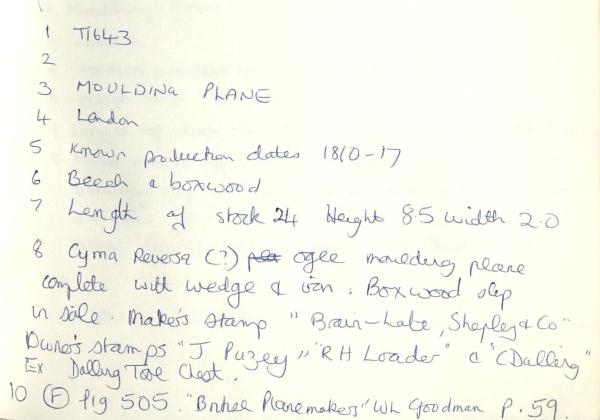 1 T1643
2
3 MOULDING PLANE
4 London
5 Known production dates 1810-17
6 Beech & boxwood
7 Length of stock 24 Height 8.5 width 2.0
8 Cyma Reversa (?) ogee moulding plane
complete with wedge & iron. Boxwood slip
in sole. Maker's stamp "Brain-Late, Shepley & Co"
Owner's stamps "J Puzey" "R H Loader" & "C Dalling"
Ex Dalling Tool Chest.
10 (F) fig 505. "British Planemakers" WL Goodman p. 59.